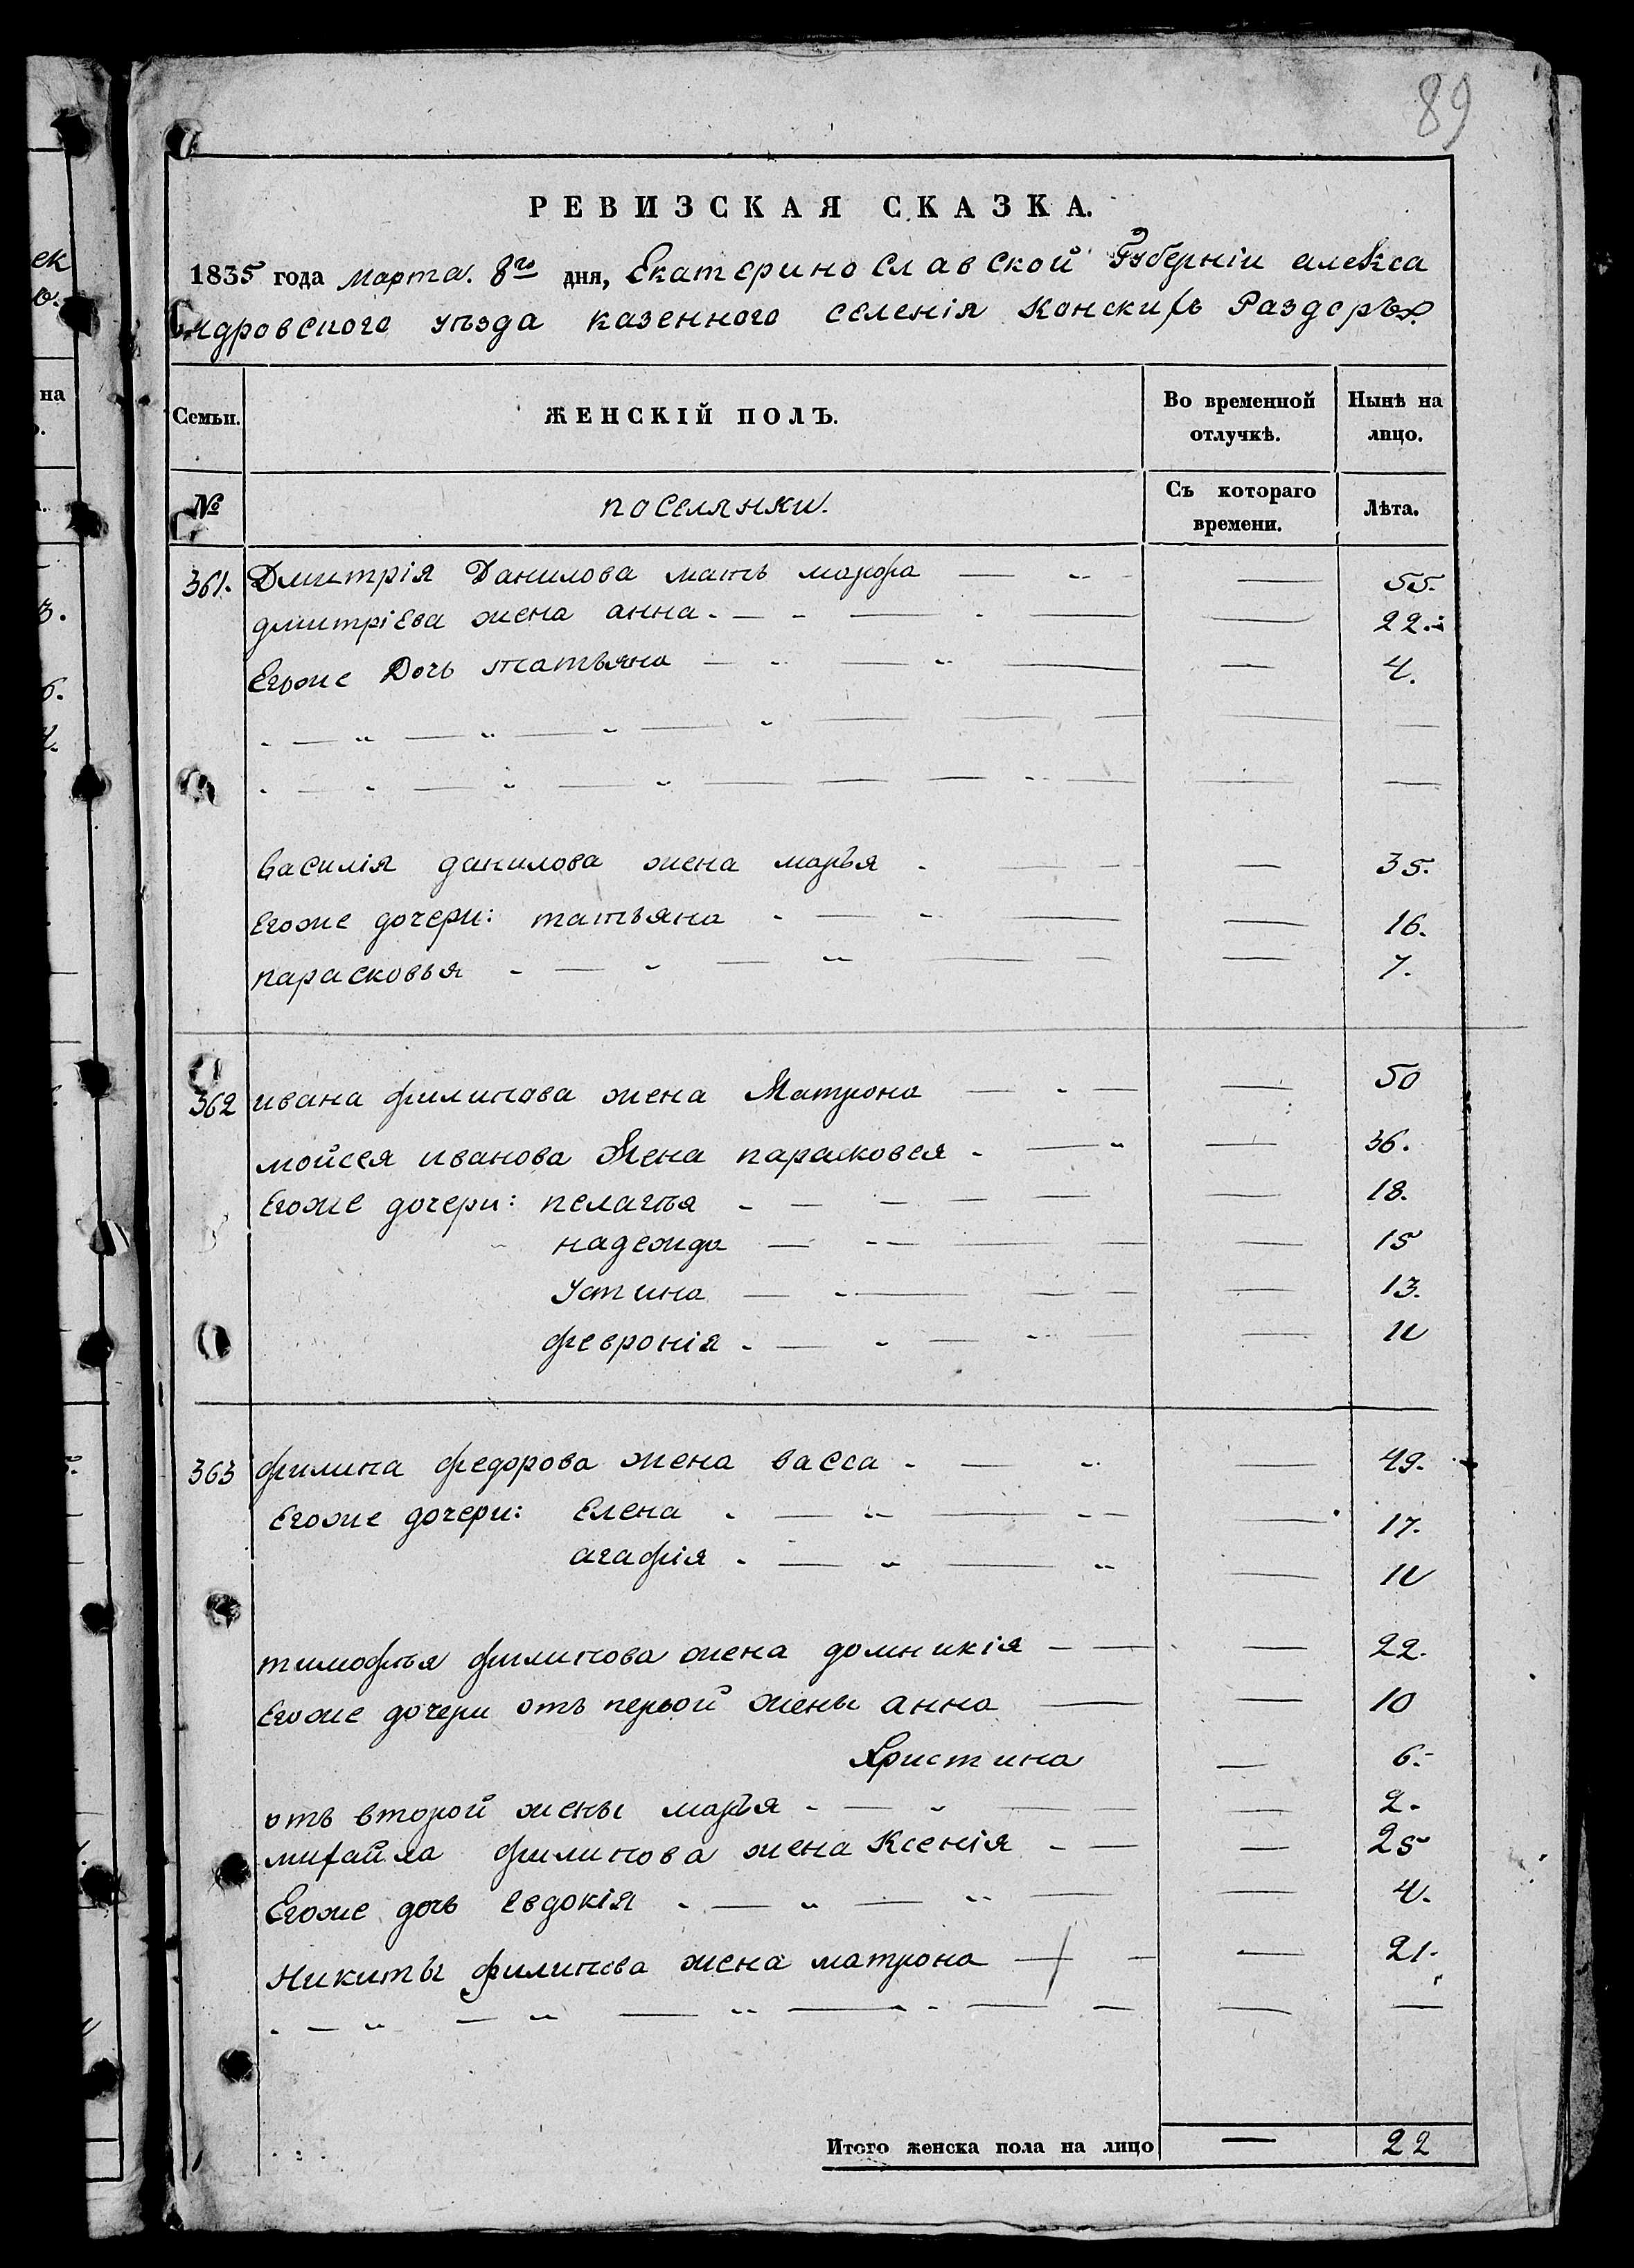 89
РЕВИЗСКАЯ СКАЗКА.
1835 года марта. 8го дня, Екатеринославской Губерніи алекса
ндровского уѣзда казенного селенія Конскихъ Раздоръх
Семьи. ЖЕНСКІЙ ПОЛЪ. Во временной отлучкѣ. Нынѣ на лицо.
№ поселянки. Съ котораго времени. Лѣта.
361. Дмитрія Данилова мать марфа — — 55.
дмитріева жена анна — — 22.
Егоже Дочь татьяна — — 4.
василія данилова жена марья — — 35.
Егоже дочери: татьяна — — 16.
парасковья — — 7.
362 ивана филипова жена Матрона — — 50
мойсея иванова Жена парасковея — — 36.
Егоже дочери: пелагѣя — — 18.
надежда — — 15
Устина — — 13.
февронія — — 11
363 филипа федорова жена васса — — 49.
Егоже дочери: Елена — — 17.
агафія — — 11
тимофѣя филипова жена домникія — — 22.
Егоже дочери отъ первой жены анна — — 10
Христина — 6.
отъ второй жены марья — — 2.
михайла филипова жена Ксенія — — 25
Егоже дочь евдокія — — 4.
Никиты филипова жена матрона — — 21.
Итого женска пола на лицо — 22